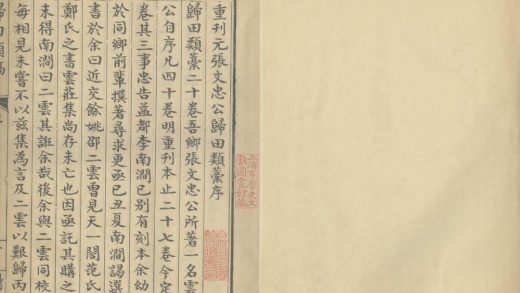 上海市歷史文
獻圖書館藏
重刊元張文忠公歸田類藁序
歸田類藁二十卷吾鄉張文忠公所著一名雲
公自序凡四十卷明重刊本止二十七卷今定
卷其三事忠告益都李南澗已别有刻本余幼
於同鄉前輩撰著尋求更亟己丑夏南澗謁選
書於余曰近交餘姚邵二雲曾見天一閣范氏
鄭氏之書雲莊集尚存未亡也因亟託其購之
未得南澗曰二雲其誑余哉後余與二雲同校
每相見未嘗不以茲集為言及二雲以艱歸丙
歸田類藁